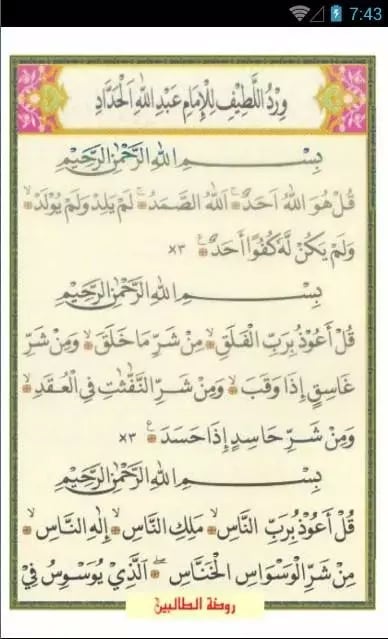 7:43
وِرْدُ اللَّطِيْفِ لِلْإِمَامِ عَبْدِ اللهِ الْحَدَّادِ
بِسْــــــمِ اللهِ الرَّحْمٰنِ الرَّحِيْمِ
قُلْ هُوَ اللهُ اَحَدٌۚ ۞ اَللهُ الصَّمَدُۚ ۞ لَمْ يَلِدْ وَلَمْ يُوْلَدْۙ ۞
وَلَمْ يَكُنْ لَّهٗ كُفُوًا أَحَدٌࣖ ۞ ×٣
بِسْــــــمِ اللهِ الرَّحْمٰنِ الرَّحِيْمِ
قُلْ أَعُوْذُ بِرَبِّ الْفَلَقِۙ ۞ مِنْ شَرِّ مَا خَلَقَۙ ۞ وَمِنْ شَرِّ
غَاسِقٍ إِذَا وَقَبَۙ ۞ وَمِنْ شَرِّ النَّفّٰثٰتِ فِي الْعُقَدِۙ ۞
وَمِنْ شَرِّ حَاسِدٍ إِذَا حَسَدَࣖ ۞ ×٣
بِسْــــــمِ اللهِ الرَّحْمٰنِ الرَّحِيْمِ
قُلْ أَعُوْذُ بِرَبِّ النَّاسِۙ ۞ مَلِكِ النَّاسِۙ ۞ إِلٰهِ النَّاسِۙ ۞
مِنْ شَرِّ الْوَسْوَاسِ الْخَنَّاسِۖ ۞ اَلَّذِيْ يُوَسْوِسُ فِيْ
روضة الطالبين